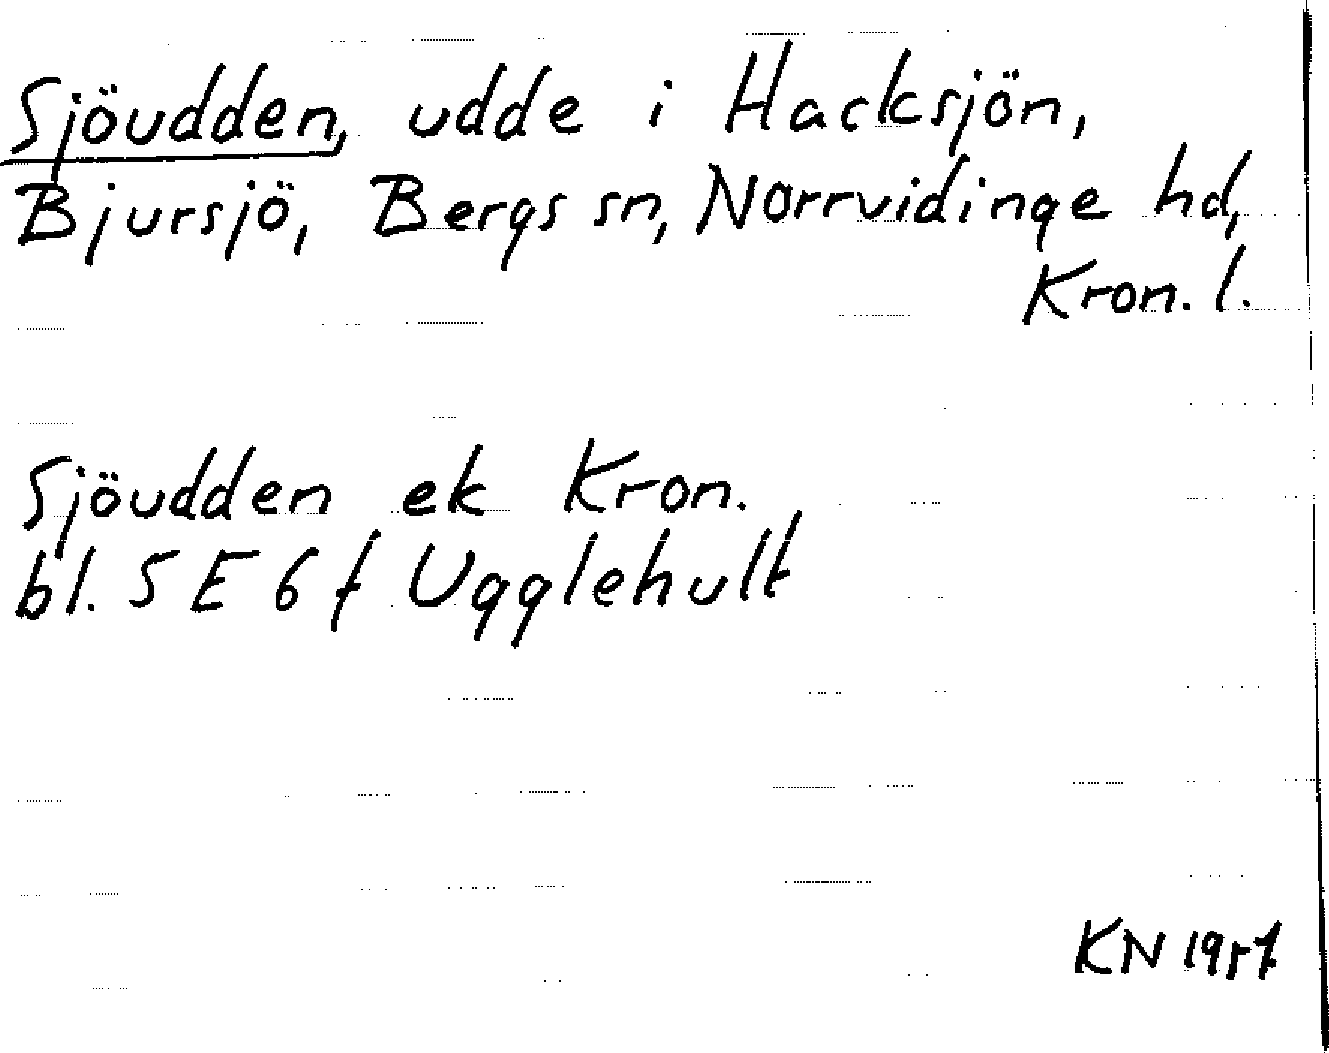 Sjöudden, udde i Hacksjön,
Bjursjö, Bergs sn, Norrvidinge hd,
Kron. l.
Sjöudden ek Kron.
bl. 5 E 6 f Ugglehult
KN 1957